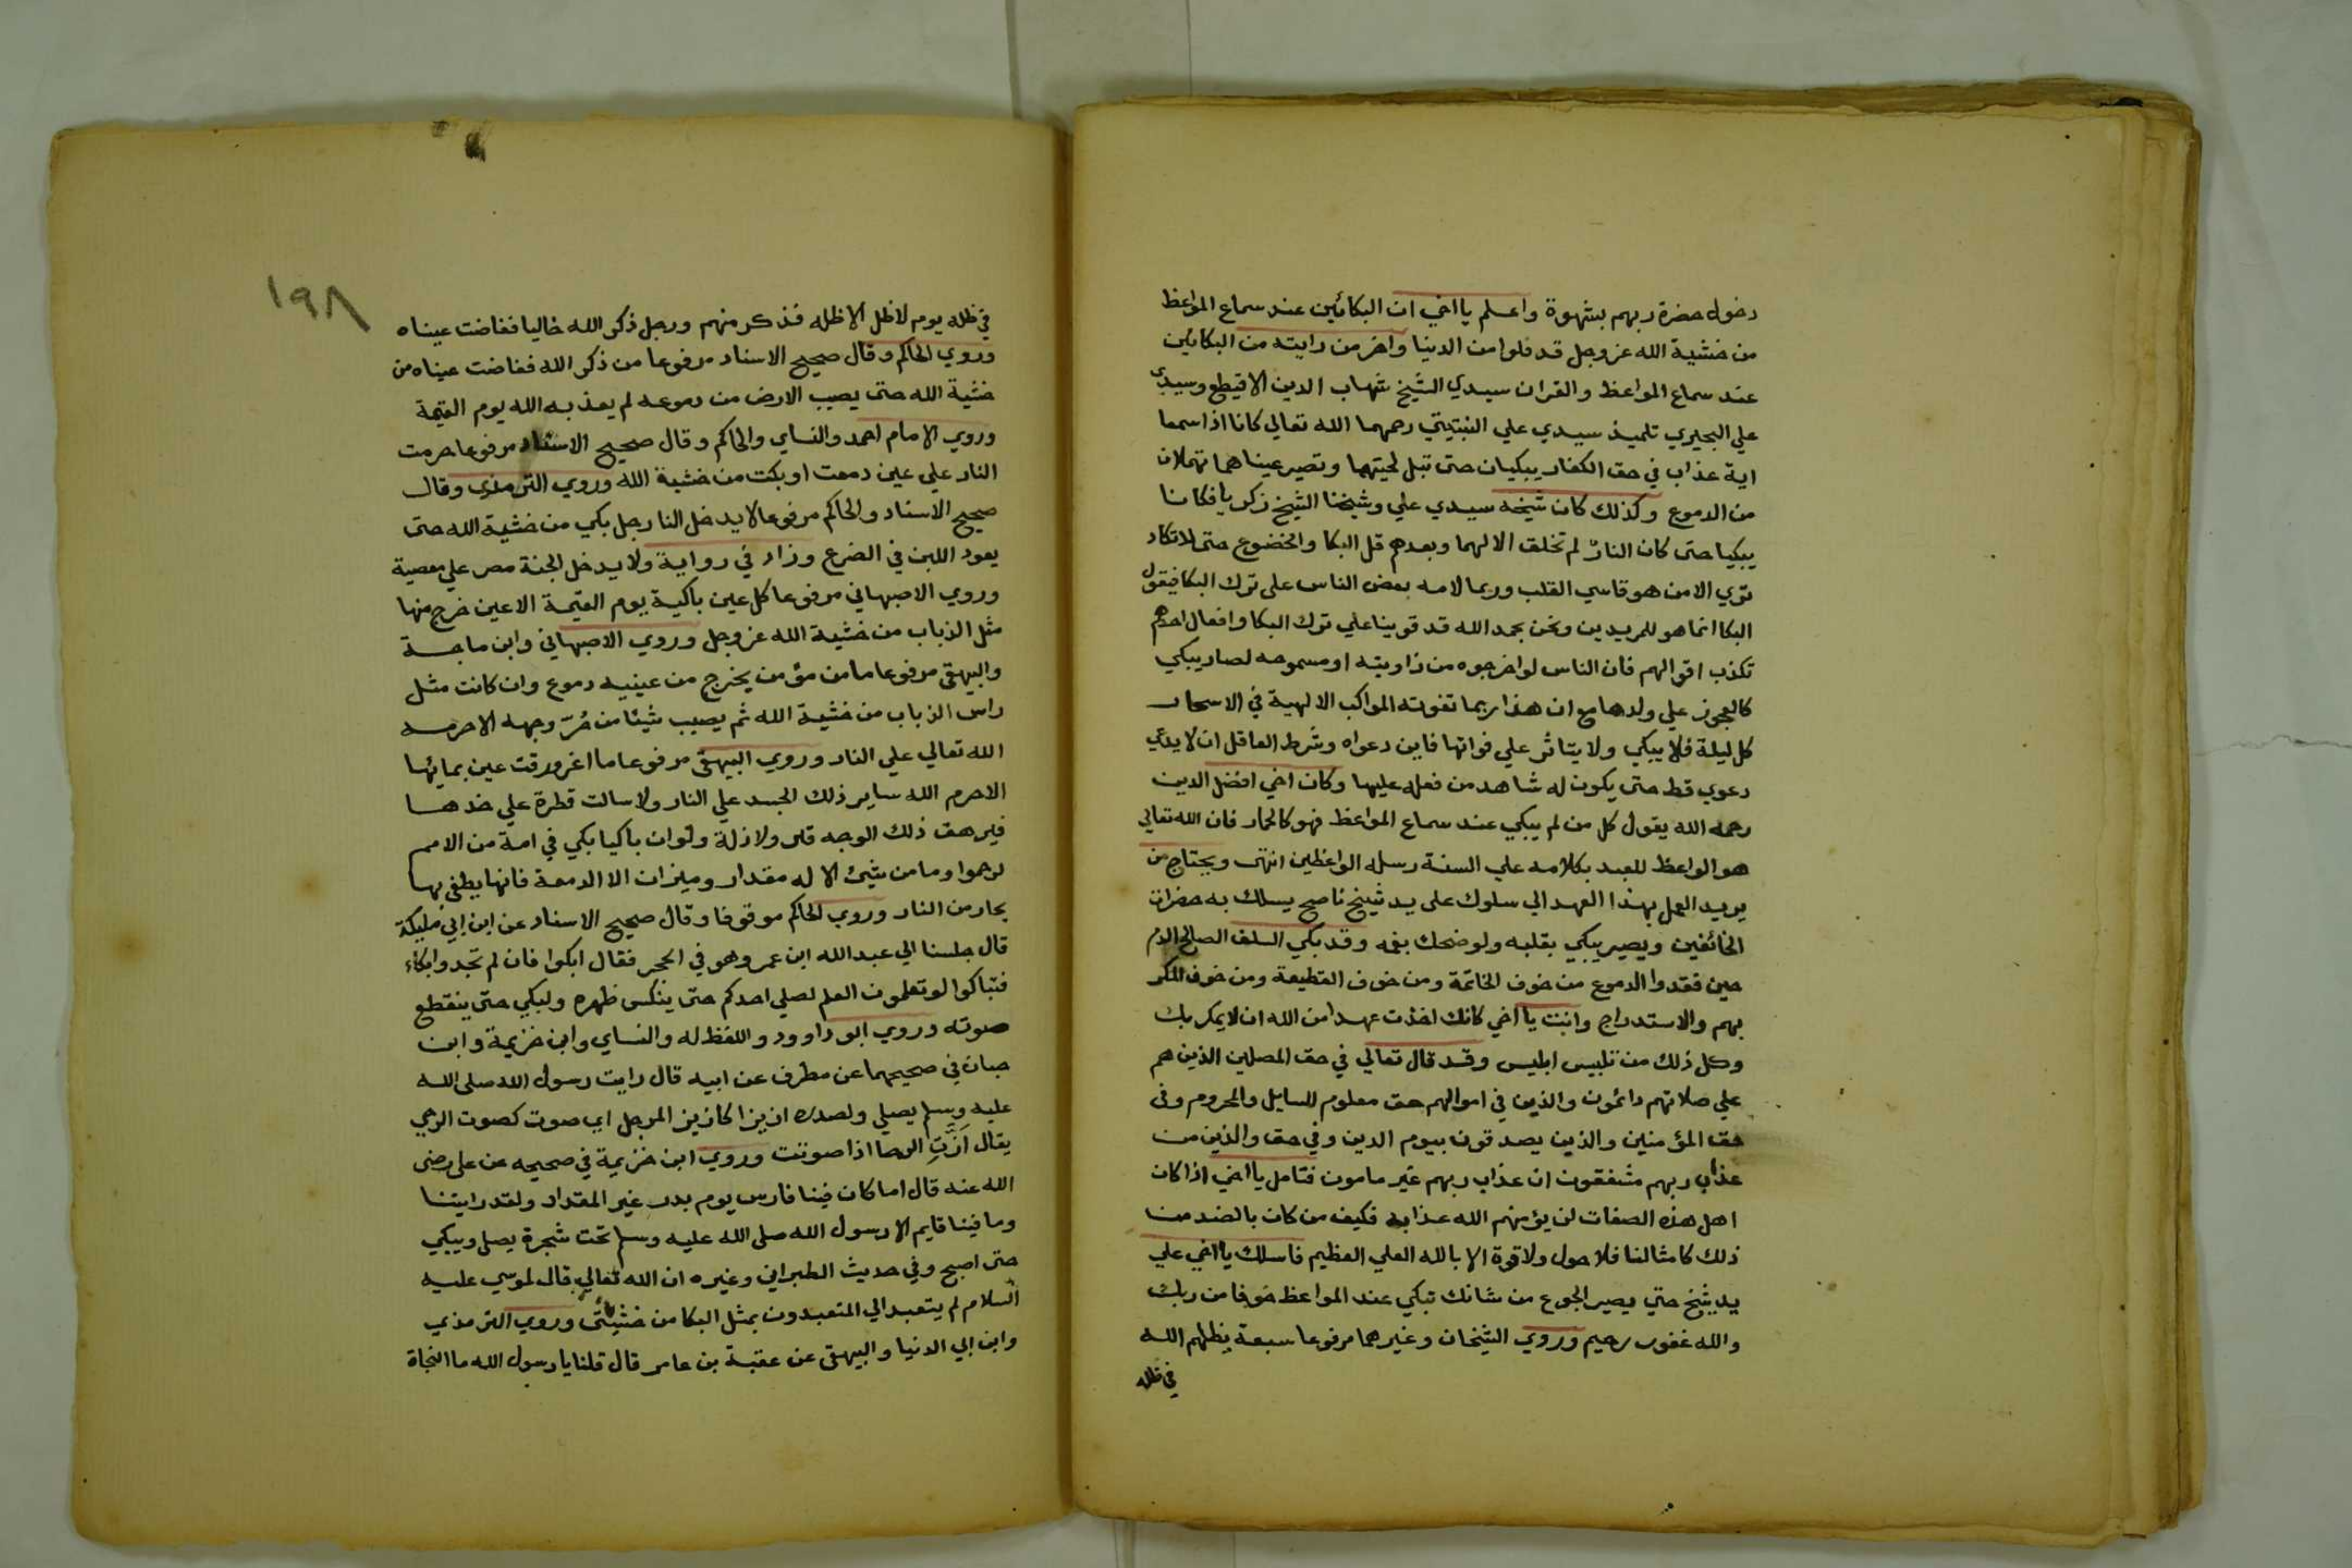 دخول حضرة ربهم بشهوة واعلم يا اخي ان البكائين عند سماع المواعظ
من خشية الله عز وجل قد قلوا من الدنيا واخر من رايته من البكائين
عند سماع المواعظ والقران سيدي الشيخ شهاب الدين الاقيطع وسيدي
علي البحيري تلميذ سيدي علي النبتيتي رحمهما الله تعالي كانا اذا سمعا
اية عذاب في حق الكفار يبكيان حتى تبل لحيتهما وتصير عيناهما تهملان
من الدموع وكذلك كان شيخه سيدي علي وشيخنا الشيخ زكريا فكانا
يبكيا حتى كان النار لم تخلق الا لهما وبعدهم قل البكا والخضوع حتى لا تكاد
تري الا من هو قاسي القلب وربما لامه بعض الناس على ترك البكا فيقول
البكا انما هو للمريدين ونحن بحمد الله قد قوينا علي ترك البكا وافعال احدهم
تكذب اقوالهم فان الناس لو اخرجوه من زاويته او مسموحه لصار يبكي
كالعجوز علي ولدها مع ان هذا ربما تفوته المواكب الالهية في الاسحار
كل ليلة فلا يبكي ولا يتاثر علي فواتها فاين دعواه وشرط العاقل ان لا يدعي
دعوي قط حتى يكون له شاهد من فعله عليها وكان اخي افضل الدين
رحمه الله يقول كل من لم يبكي عند سماع المواعظ فهو كالحمار فان الله تعالي
هو الواعظ للعبد بكلامه علي السنة رسله الواعظين انتهى ويحتاج من
يريد العمل بهذا العهد الي سلوك على يد شيخ ناصح يسلك به حضرات
الخائفين ويصير يبكي بقلبه ولو ضحك بفمه وقد بكي السلف الصالح الدم
حين فقدوا الدموع من خوف الخاتمة ومن خوف القطيعة ومن خوف المكر
بهم والاستدراج وانت يا اخي كانك اخذت عهدا من الله ان لا يمكر بك
وكل ذلك من تلبيس ابليس وقد قال تعالي في حق المصلين الذين هم
علي صلاتهم دائمون والذين في اموالهم حق معلوم للسايل والمحروم وفى
حق المؤمنين والذين يصدقون بيوم الدين وفي حق والذين من
عذاب ربهم مشفقون ان عذاب ربهم غير مامون فتامل يا اخي اذا كان
اهل هذه الصفات لن يؤمنهم الله عذابه فكيف من كان بالضد من
ذلك كامثالنا فلا حول ولا قوة الا بالله العلي العظيم فاسلك يا اخي علي
يد شيخ حتي يصير الجوع من شانك تبكي عند المواعظ خوفا من ربك
والله غفور رحيم وروي الشيخان وغيرهما مرفوعا سبعة يظلهم الله
في ظله
١٩٨
في ظله يوم لا ظل الا ظله فذكر منهم ورجل ذكر الله خاليا ففاضت عيناه
وروي الحاكم وقال صحيح الاسناد مرفوعا من ذكر الله ففاضت عيناه من
خشية الله حتى يصيب الارض من دموعه لم يعذبه الله يوم القيمة
وروي الامام احمد والنساي والحاكم وقال صحيح الاسناد مرفوعا حرمت
النار علي عين دمعت او بكت من خشية الله وروي الترمذي وقال
صحيح الاسناد والحاكم مرفوعا لا يدخل النار رجل بكي من خشية الله حتى
يعود اللبن في الضرع وزاد في رواية ولا يدخل الجنة مصر علي معصية
وروي الاصبهاني مرفوعا كل عين باكية يوم القيمة الا عين خرج منها
مثل الذباب من خشية الله عز وجل وروي الاصبهاني وابن ماجة
والبيهقي مرفوعا ما من مؤمن يخرج من عينيه دموع وان كانت مثل
راس الذباب من خشية الله ثم يصيب شيئا من حُرّ وجهه الا حرمه
الله تعالي علي النار وروي البيهقي مرفوعا ما اغرورقت عين بمايها
الا حرم الله ساير ذلك الجسد علي النار ولا سالت قطرة علي خدها
فيرهق ذلك الوجه قتر ولا ذلة ولو ان باكيا بكي في امة من الامم
لرحموا وما من شيئ الا له مقدار وميزان الا الدمعة فانها يطفى بها
بحار من النار وروي الحاكم موقوفا وقال صحيح الاسناد عن ابن ابي مليكة
قال جلسنا الي عبد الله ابن عمر وهو في الحجر فقال ابكوا فان لم تجدوا بكاء
فتباكوا لو تعلمون العلم لصلي احدكم حتى ينكس ظهره ولبكي حتى ينقطع
صوته وروي ابو داوود واللفظ له والنساي وابن خزيمة وابن
حبان في صحيحهما عن مطرف عن ابيه قال رايت رسول الله صلى الله
عليه وسلم يصلي ولصدره ازيزا كازيز المرجل اي صوت كصوت الرحي
يقال أزّت الرحا اذا صوتت وروي ابن خزيمة في صحيحه عن على رضى
الله عنه قال اما كان فينا فارس يوم بدر غير المقداد ولقد رايتنا
وما فينا قايم الا رسول الله صلى الله عليه وسلم تحت شجرة يصلي ويبكي
حتى اصبح وفي حديث الطبراني وغيره ان الله تعالي قال لموسي عليه
السلام لم يتعبد الي المتعبدون بمثل البكا من خشيتي وروي الترمذي
وابن ابي الدنيا والبيهقى عن عقبة بن عامر قال قلنا يا رسول الله ما النجاة